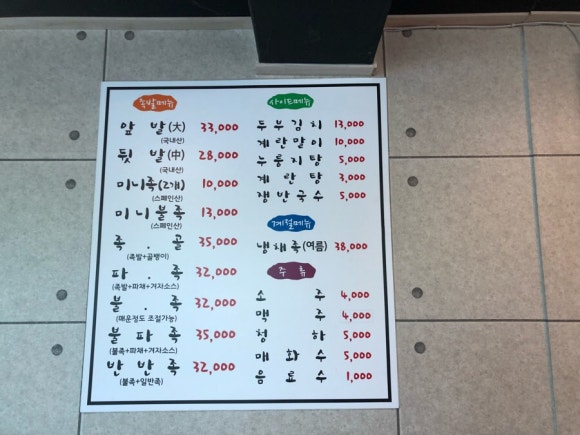 족발메뉴
앞 발(大) 33,000
(국내산)
뒷 발(中) 28,000
(국내산)
미니족(2개) 10,000
(스페인산)
미니불족 13,000
(스페인산)
족.골 35,000
(족발+골뱅이)
파.족 32,000
(족발+파채+겨자소스)
불.족 32,000
(매운정도 조절가능)
불파족 35,000
(불족+파채+겨자소스)
반반족 32,000
(불족+일반족)
사이드메뉴
두부김치 13,000
계란말이 10,000
누룽지탕 5,000
계란탕 3,000
쟁반국수 5,000
계절메뉴
냉채족(여름) 38,000
주류
소주 4,000
맥주 4,000
청하 5,000
매화수 5,000
음료수 1,000